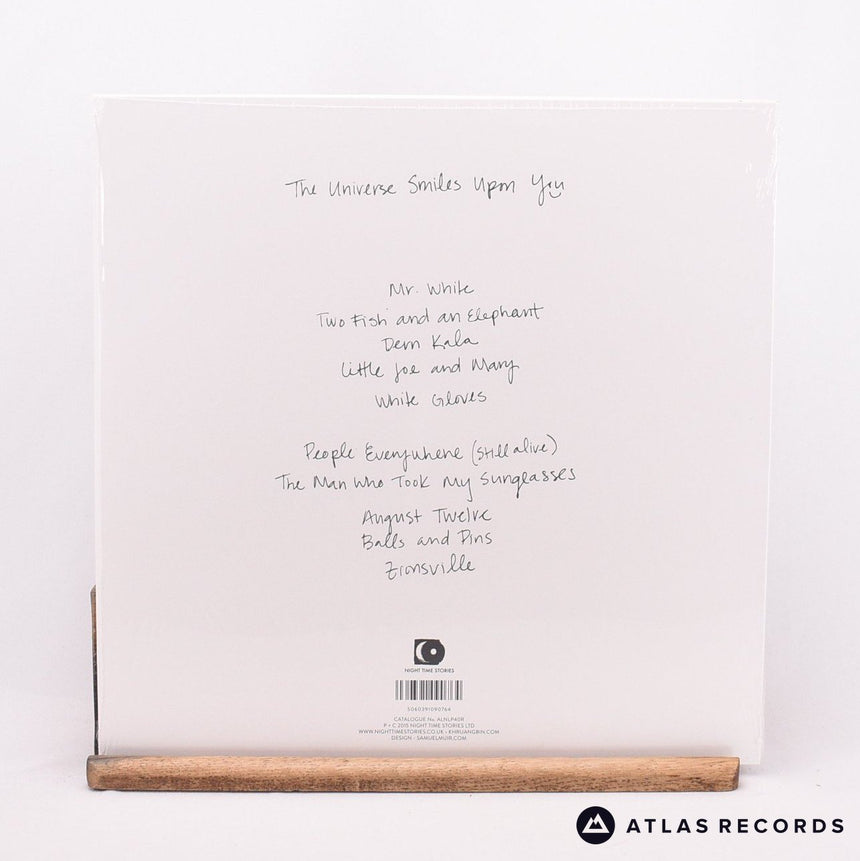 The Universe Smiles Upon You
Mr. White
Two Fish and an Elephant
Dern Kala
Little Joe and Mary
White Gloves
People Everywhere (Still alive)
The Man Who Took My Sunglasses
August Twelve
Balls and Pins
Zionsville
NIGHT TIME STORIES
5060391090764
CATALOGUE No. ALNLP40R
P + C 2015 NIGHT TIME STORIES LTD
WWW.NIGHTTIMESTORIES.CO.UK - KHRUANGBIN.COM
DESIGN - SAMUELMUIR.COM
ATLAS RECORDS